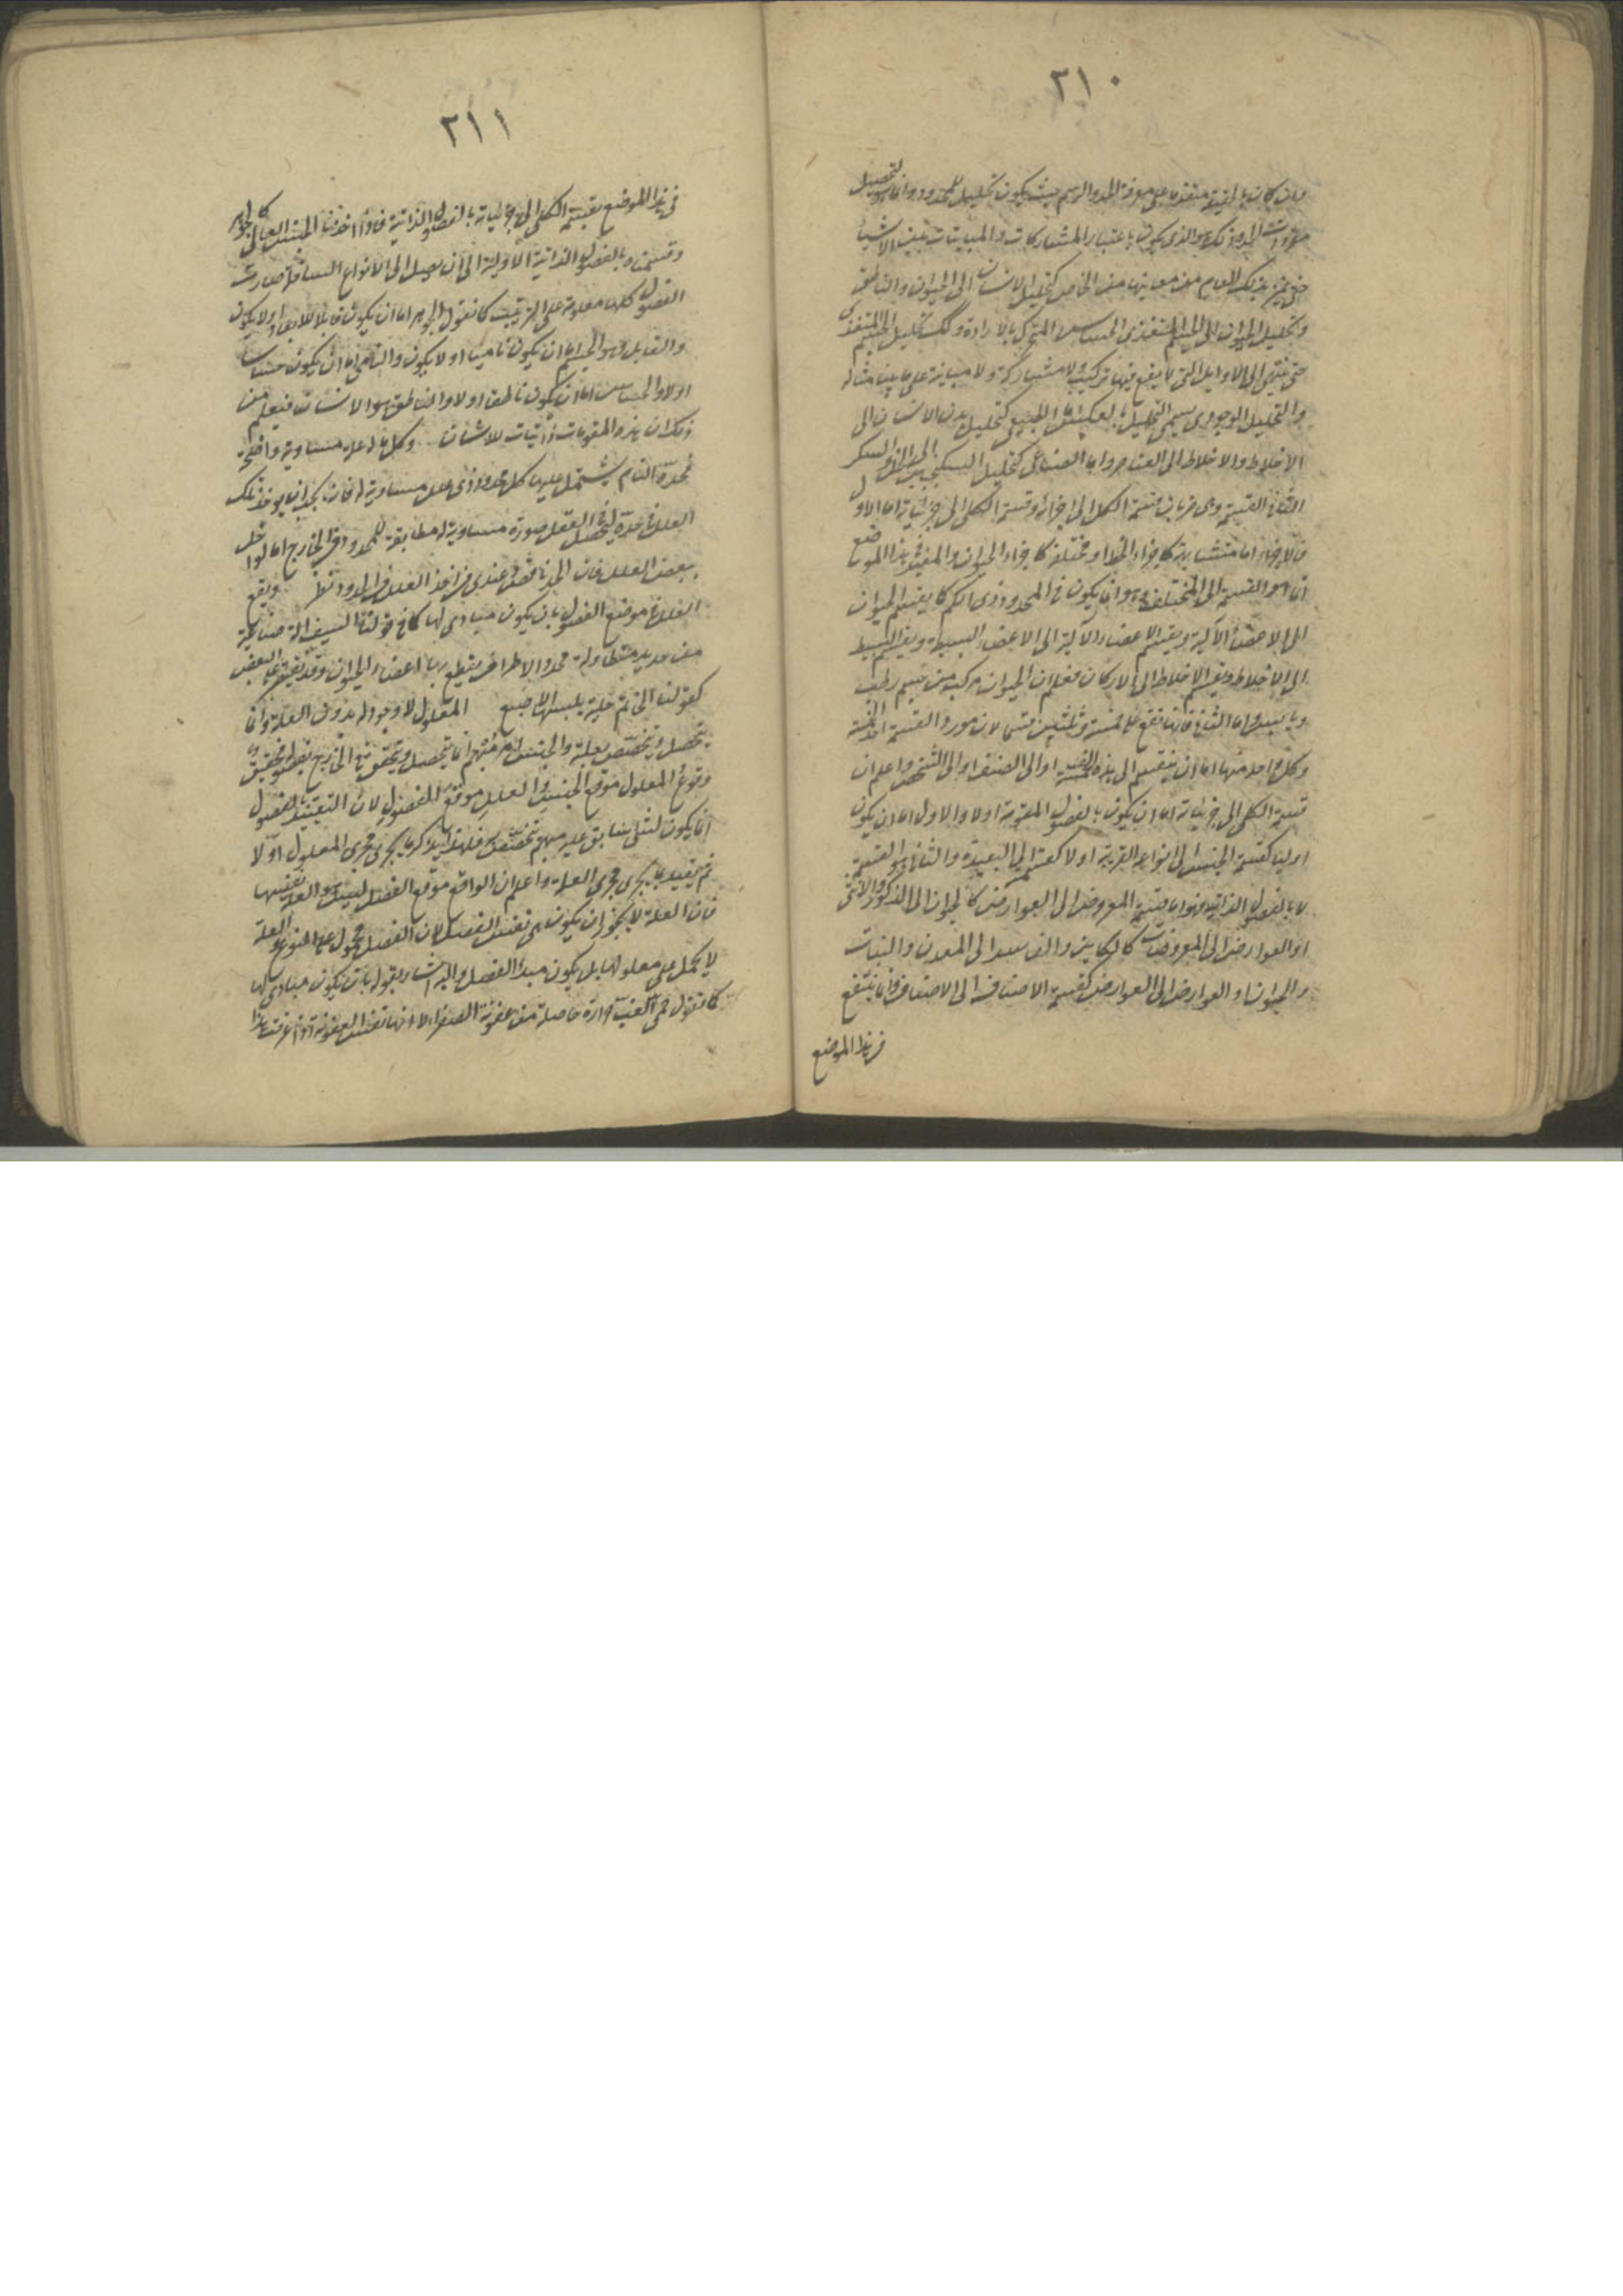 ٢١٠
وان كان بالحقيقة متقدما على معرفة الحد والرسم بحيث يكون تحليل للمحدود وانما هو لتحصيل
مفردات الحدود ذلك هو الذى يكون باعتبار المشاركات والمباينات بين الاشيا
حتى يتميز بذلك العام من معانيها من الخاص كتحليل الانسان الى الحيوان والناطق
وتحليل الحيوان الى الجسم المتغذى الحساس المتحرك بالارادة وكك تحليل الجسم المتغذى
حتى ينتهى الى الاوايل التى لا يقع فيها تركيب ولا مشاركة ولا مباينة على ما بينا مثاله
والتحليل الوجودى يسمى التحليل بالعكس اما الطبيعى كتحليل بدن الانسان الى
الاخلاط والاخلاط الى العناصر واما الصناعى كتحليل السكنجبين الى الخل والسكر
الثانى القسمة وهى ضربان قسمة الكل الى اجزائه وقسمة الكلى الى جزئياته اما الاول
فالاجزاء اما متشابهة كاجزاء الخط او مختلفة كاجزاء الحيوان والمفيد فى هذا الموضع
انما هو القسمة الى المختلفة وهو انما يكون فى المحدود ذى الكم كما يقسم الحيوان
الى الاعضاء الآلية ويقسم الاعضاء الآلية الى الاعضاء البسيطة ويقسم البسيط
الى الاخلاط ويقسم الاخلاط الى الاركان فعلم ان الحيوان مركب من جسم رطب
ويابس واما الثانى فانها تقع على خمسة وثلثين قسما لان مورد القسمة احد الخمسة
وكل واحد منها اما ان ينقسم الى هذه الخمسة او الى الصنف او الى الشخص واعلم ان
قسمة الكلى الى جزئياته اما ان يكون بالفصول المقومة اولا والاول اما ان يكون
اوليا كقسمة الجنس الى انواعه القريبة اولا كقسمته الى البعيدة والثانى هو القسمة
لا بالفصول الذاتية فهو اما قسمة المعروض الى العوارض كالحيوان الى الذكور والانثى
او العوارض الى المعروضات كالكاين والفاسد الى المعدن والنبات
والحيوان او العوارض الى العوارض كقسمة الاصناف الى الاصناف وانما ينتفع
فى هذا الموضع
٢١١
فى هذا الموضع بقسمة الكلى الى جزئياته بالفصول الذاتية فاذا اخذنا الجنس العالى كالجوهر
وقسمناه بالفصول الذاتية الاولية الى ان يصل الى الانواع السافلة صارت
الفصول كلها معلومة على الترتيب كما نقول الجوهر اما ان يكون قابلا للابعاد اولا يكون
والقابل هو الجسم اما ان يكون ناميا اولا يكون والنامى اما ان يكون حساسا
اولا والحساس اما ان يكون ناطقا اولا والناطق هو الانسان فيعلم من
ذلك ان هذه المقومات ذاتيات للانسان وكل ما له علل مساوية واقعة
فحده التام يشتمل عليها كل محدود ذى علل مساوية له فانه يجب ان يوخذ تلك
العلل فى حده ليحصل فى العقل صورة مساوية له مطابقة للمحدود فى الخارج اما لو اخل
ببعض العلل فان الحد ناقص وعندى فى اخذ العلل فى الحدود نظر ويقع
العلل فى موضع الفصول بان يكون مبادى لها كما فى قولنا السيف الة صناعية
من حديد متطاولة محدد الاطراف يقطع بها اعضاء الحيوان وقد يقتصر على البعض
كقولنا الخاتم حلية يلبسها الاصبع المعلول لا وجود له بدون العلة وانما
تحصل وتخصص بعلته والجنس امر مبهم انما يتحصل ويتحقق فى الخارج بفصله فحقيق
وقوع المعلول موقع الجنس والعلل موقع الفصول لان التقييد بالفصول
انما يكون لشى سابق عليه مبهم تخصص فلهذا يذكر ما يجرى مجرى المعلول اولا
ثم تقييد بما يجرى مجرى العلة واعلم ان الواقع موقع الفصل ليس هو العلة نفسها
فان العلة لا يجوز ان يكون هى نفس الفصل لان الفصل محمول على النوع والعلة
لا يحمل على معلولها بل يكون مبدأ الفصل واليه اشار بقوله بان يكون مبادى لها
كما نقول حمى الغب حرارة حاصلة من عفونة الصفراء لا انها نفس العفونة واذا عرفت هذا